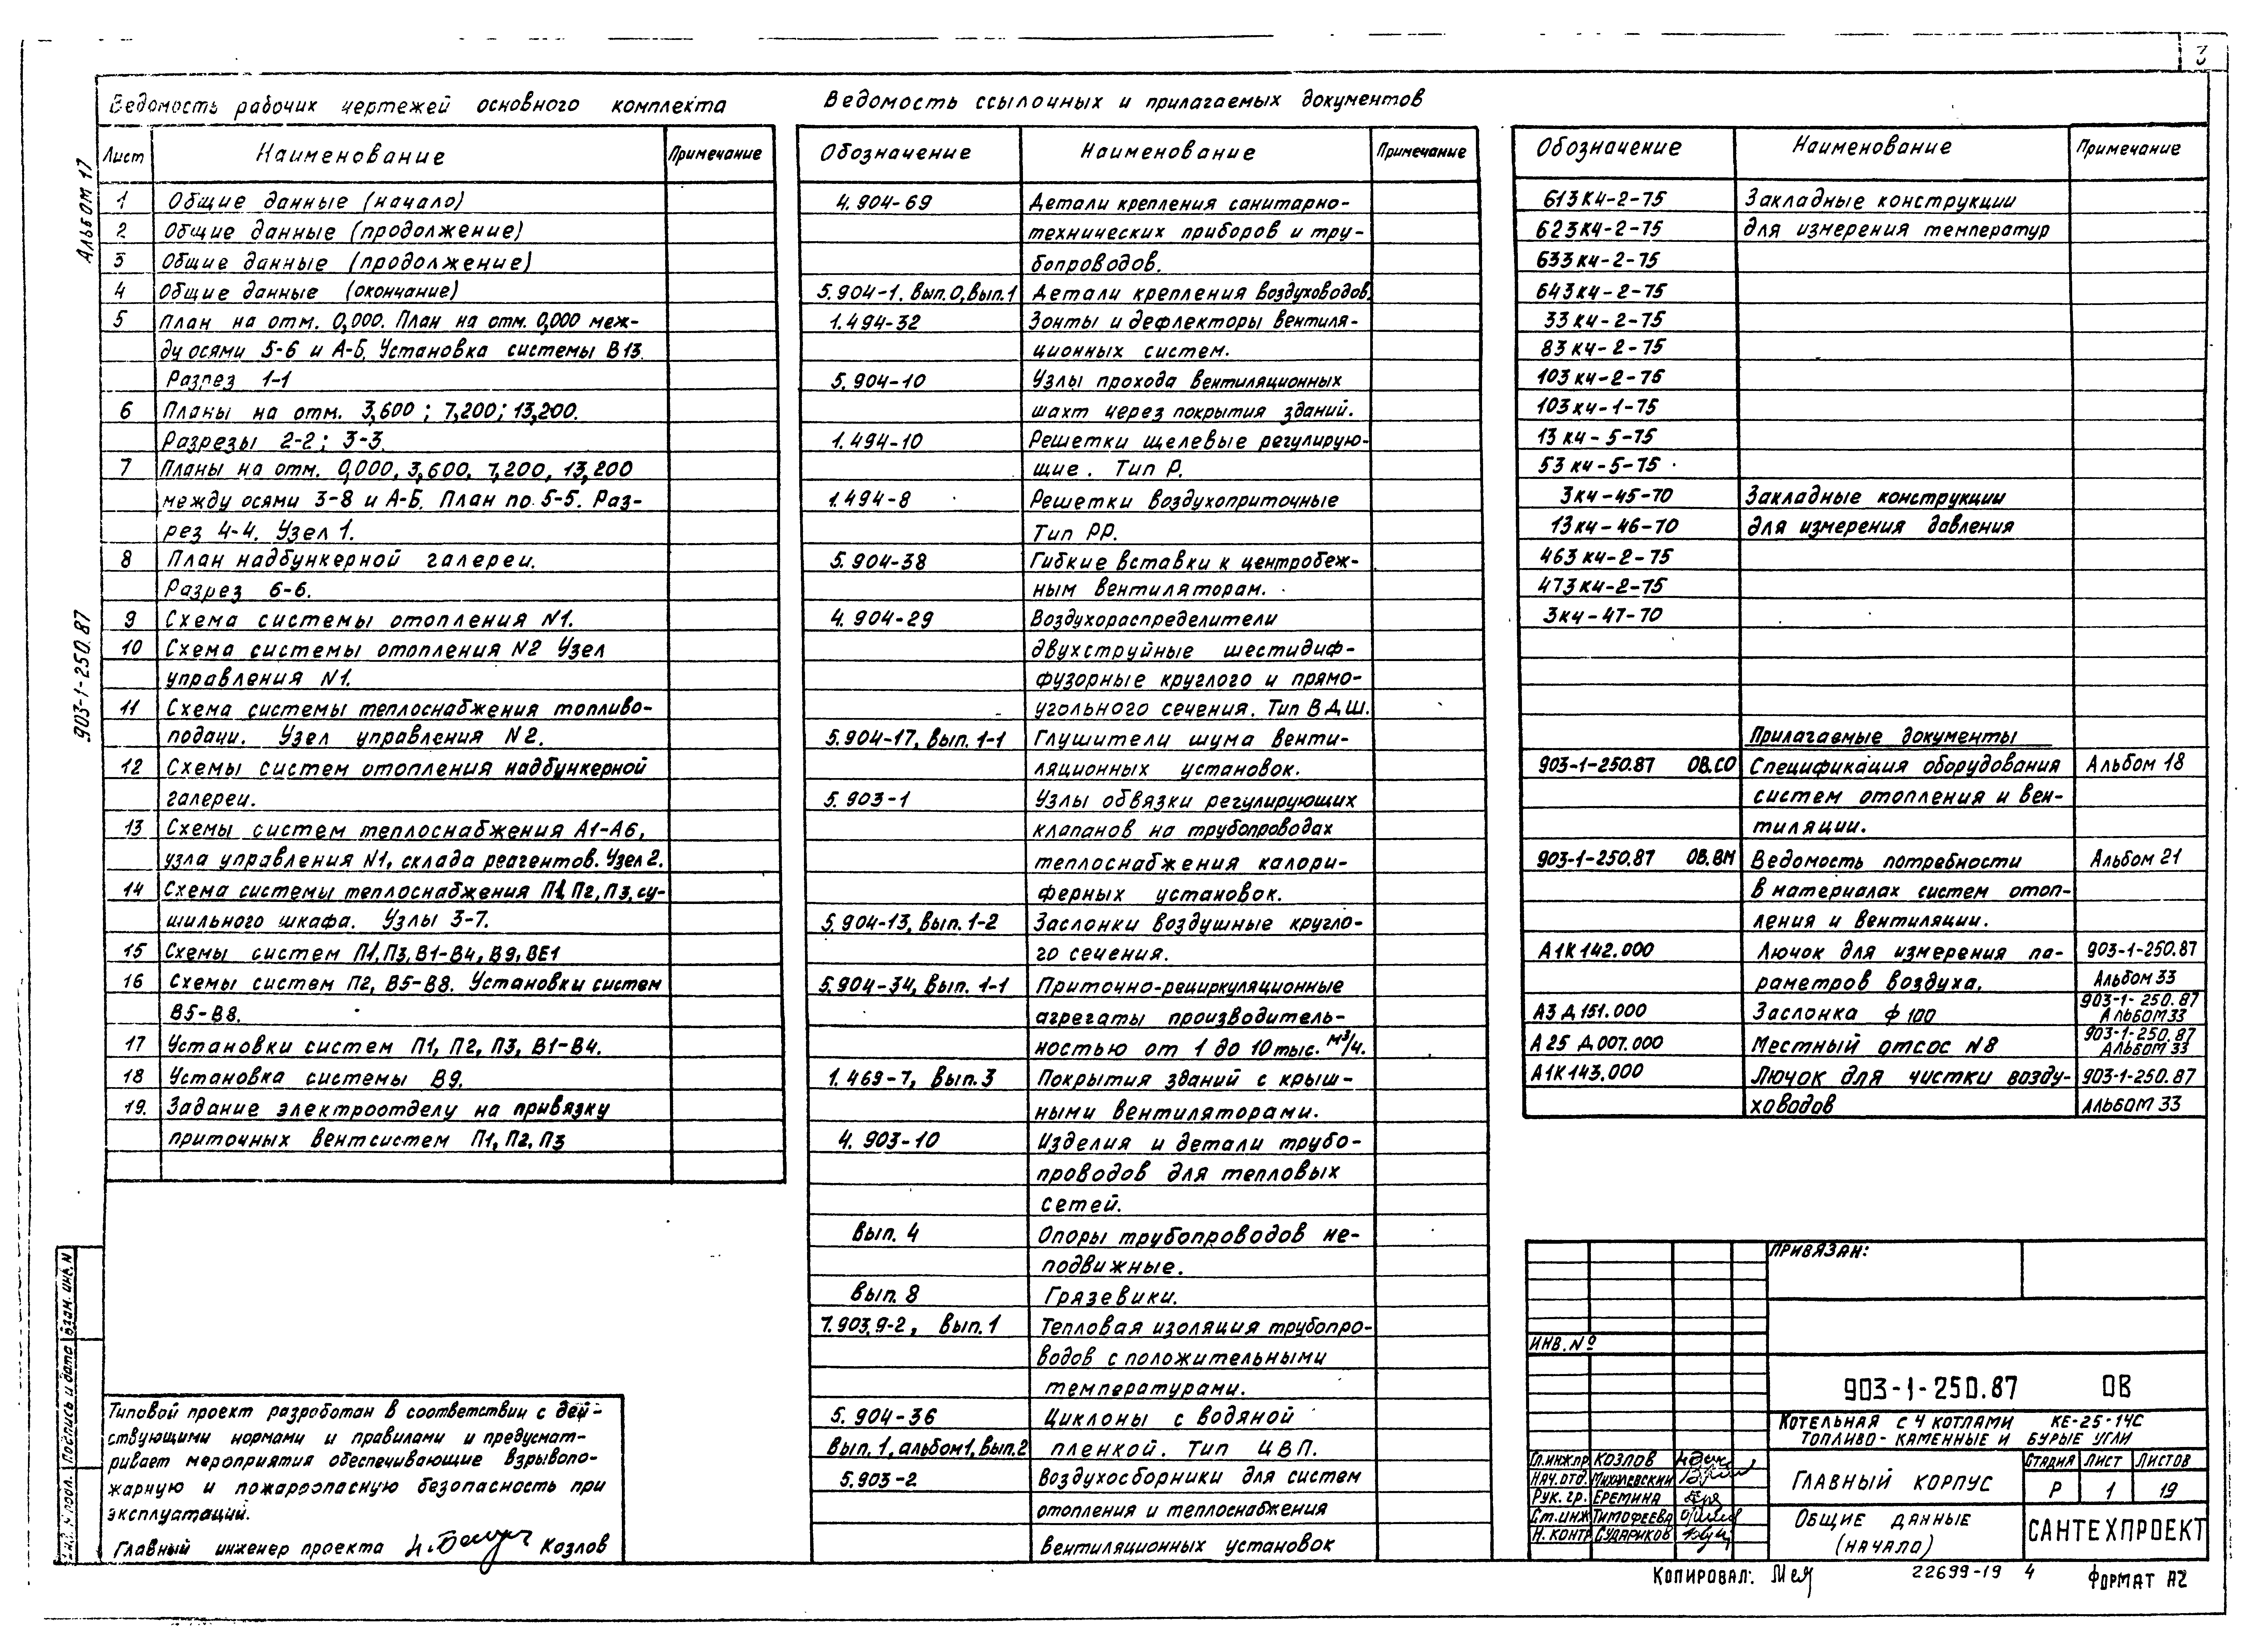 3
Альбом 17
903-1-250.87
Ведомость рабочих чертежей основного комплекта
Лист Наименование Примечание
1 Общие данные (начало)
2 Общие данные (продолжение)
3 Общие данные (продолжение)
4 Общие данные (окончание)
5 План на отм. 0,000. План на отм. 0,000 меж-
ду осями 5-6 и А-Б. Установка системы В13.
Разрез 1-1
6 Планы на отм. 3,600; 7,200; 13,200.
Разрезы 2-2; 3-3.
7 Планы на отм. 0,000, 3,600, 7,200, 13,200
между осями 3-8 и А-Б. План по 5-5. Раз-
рез 4-4. Узел 1.
8 План надбункерной галереи.
Разрез 6-6.
9 Схема системы отопления N1.
10 Схема системы отопления N2 Узел
управления N1.
11 Схема системы теплоснабжения топливо-
подачи. Узел управления N2.
12 Схемы систем отопления надбункерной
галереи.
13 Схемы систем теплоснабжения А1-А6,
узла управления N1, склада реагентов. Узел 2.
14 Схема системы теплоснабжения П1, П2, П3, су-
шильного шкафа. Узлы 3-7.
15 Схемы систем П1, П3, В1-В4, В9, ВЕ1
16 Схемы систем П2, В5-В8. Установки систем
В5-В8.
17 Установки систем П1, П2, П3, В1-В4.
18 Установка системы В9.
19. Задание электроотделу на привязку
приточных вентсистем П1, П2, П3
Типовой проект разработан в соответствии с дей-
ствующими нормами и правилами и предусмат-
ривает мероприятия обеспечивающие взрывопо-
жарную и пожароопасную безопасность при
эксплуатаций.
Главный инженер проекта Козлов
Подпись и дата Взам. инв. N
Ведомость ссылочных и прилагаемых документов
Обозначение Наименование Примечание
4.904-69 Детали крепления санитарно-
технических приборов и тру-
бопроводов.
5.904-1. Вып.0, Вып.1 Детали крепления воздуховодов.
1.494-32 Зонты и дефлекторы вентиля-
ционных систем.
5.904-10 Узлы прохода вентиляционных
шахт через покрытия зданий.
1.494-10 Решетки щелевые регулирую-
щие. Тип Р.
1.494-8 Решетки воздухоприточные
Тип РР.
5.904-38 Гибкие вставки к центробеж-
ным вентиляторам.
4.904-29 Воздухораспределители
двухструйные шестидиф-
фузорные круглого и прямо-
угольного сечения. Тип ВДШ.
5.904-17, Вып. 1-1 Глушители шума венти-
ляционных установок.
5.903-1 Узлы обвязки регулирующих
клапанов на трубопроводах
теплоснабжения калори-
ферных установок.
5.904-13, Вып. 1-2 Заслонки воздушные кругло-
го сечения.
5.904-34, Вып. 1-1 Приточно-рециркуляционные
агрегаты производитель-
ностью от 1 до 10 тыс. м³/ч.
1.469-7, Вып. 3 Покрытия зданий с крыш-
ными вентиляторами.
4.903-10 Изделия и детали трубо-
проводов для тепловых
сетей.
Вып. 4 Опоры трубопроводов не-
подвижные.
Вып. 8 Грязевики.
7.903.9-2, Вып. 1 Тепловая изоляция трубопро-
водов с положительными
температурами.
5.904-36 Циклоны с водяной
Вып. 1, альбом 1, Вып. 2 пленкой. Тип ЦВП.
5.903-2 Воздухосборники для систем
отопления и теплоснабжения
вентиляционных установок
Обозначение Наименование Примечание
613К4-2-75 Закладные конструкции
623К4-2-75 для измерения температур
633К4-2-75
643К4-2-75
33К4-2-75
83К4-2-75
103К4-2-76
103К4-1-75
13К4-5-75
53К4-5-75
3К4-45-70 Закладные конструкции
13К4-46-70 для измерения давления
463К4-2-75
473К4-2-75
3К4-47-70
Прилагаемые документы
903-1-250.87 ОВ.СО Спецификация оборудования Альбом 18
систем отопления и вен-
тиляции.
903-1-250.87 ОВ.ВМ Ведомость потребности Альбом 21
в материалах систем отоп-
ления и вентиляции.
А1К142.000 Лючок для измерения па- 903-1-250.87
раметров воздуха. Альбом 33
А3Д151.000 Заслонка ф 100 903-1-250.87 Альбом 33
А25Д.007.000 Местный отсос N8 903-1-250.87 Альбом 33
А1К143.000 Лючок для чистки возду- 903-1-250.87
ховодов Альбом 33
ПРИВЯЗАН:
ИНВ. №
903-1-250.87 ОВ
КОТЕЛЬНАЯ С 4 КОТЛАМИ КЕ-25-14С
ТОПЛИВО-КАМЕННЫЕ И БУРЫЕ УГЛИ
Гл.инж.пр. Козлов
Нач.отд. Михалевский
Рук. гр. Еремина
Ст.инж Тимофеева
Н. контр Судариков
ГЛАВНЫЙ КОРПУС
Стадия Лист Листов
Р 1 19
ОБЩИЕ ДАННЫЕ
(НАЧАЛО)
САНТЕХПРОЕКТ
КОПИРОВАЛ: 22699-19 4 ФОРМАТ А2